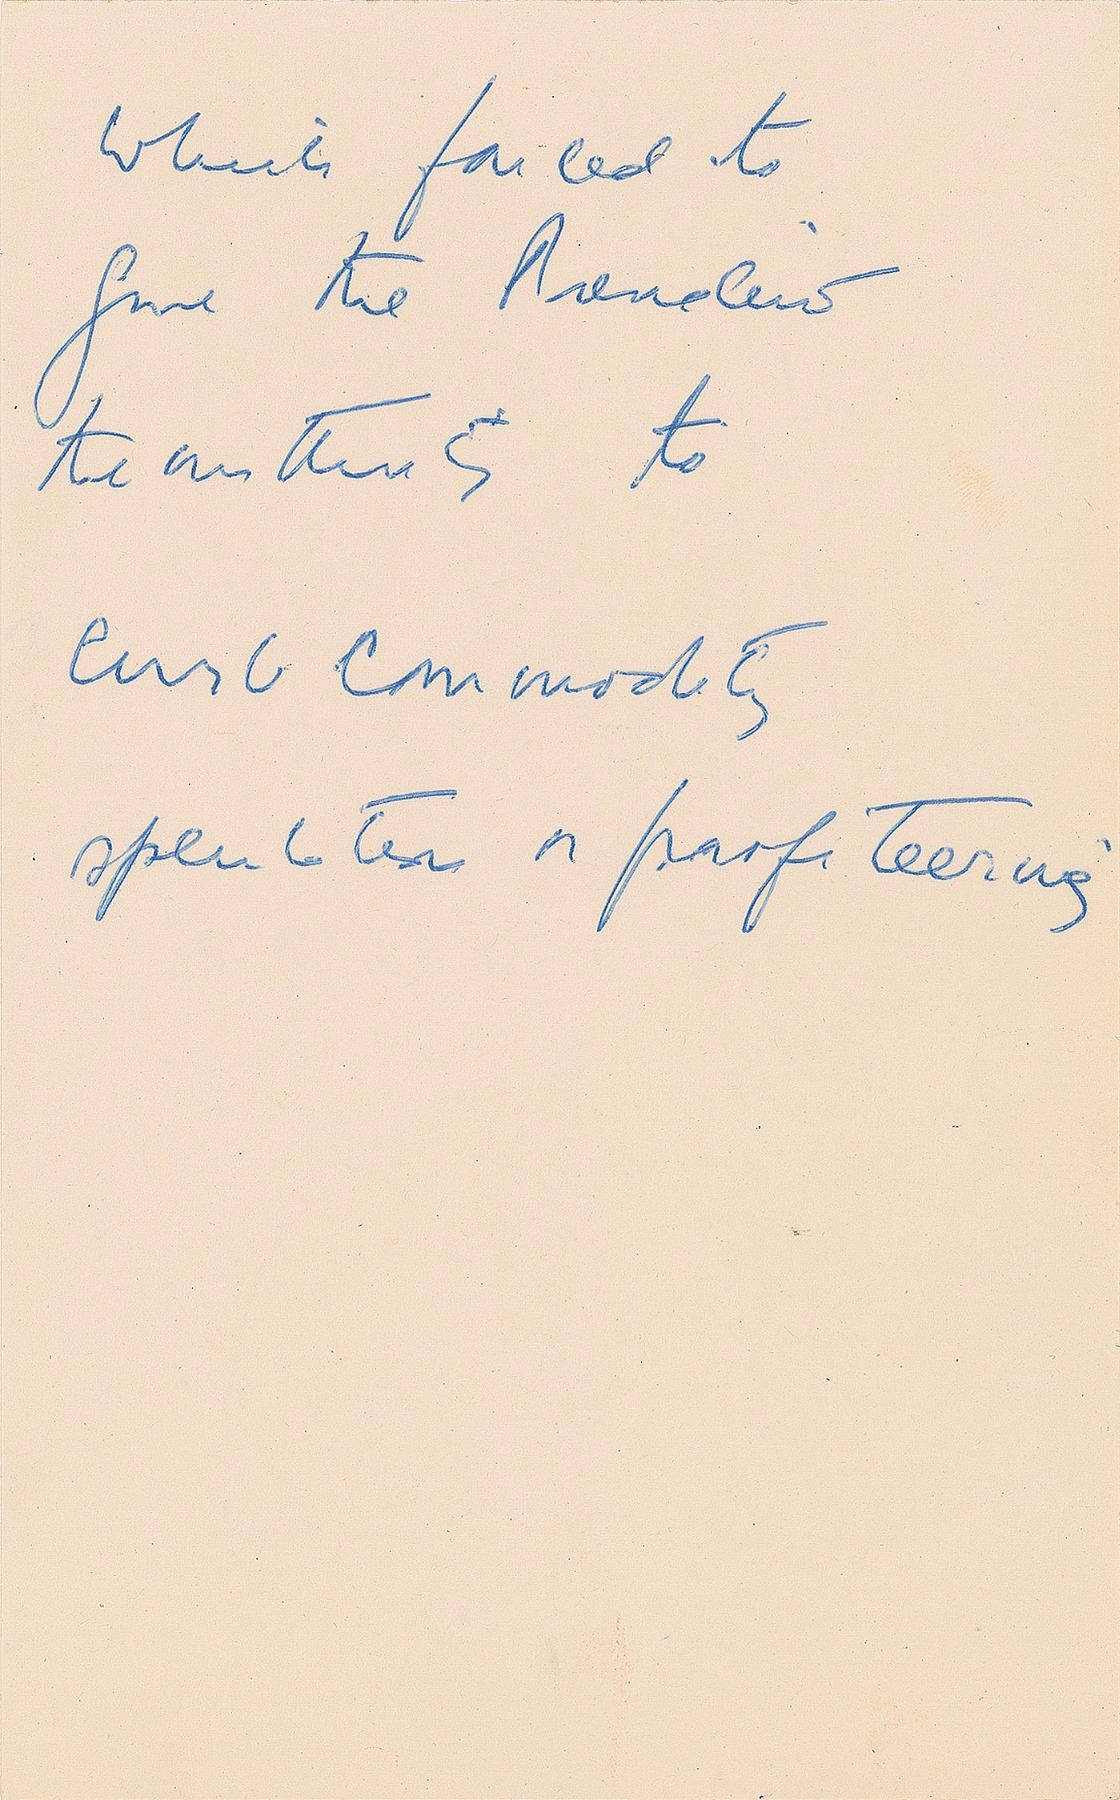 which failed to
give the President
the authority to
curb commodity
speculation or profiteering